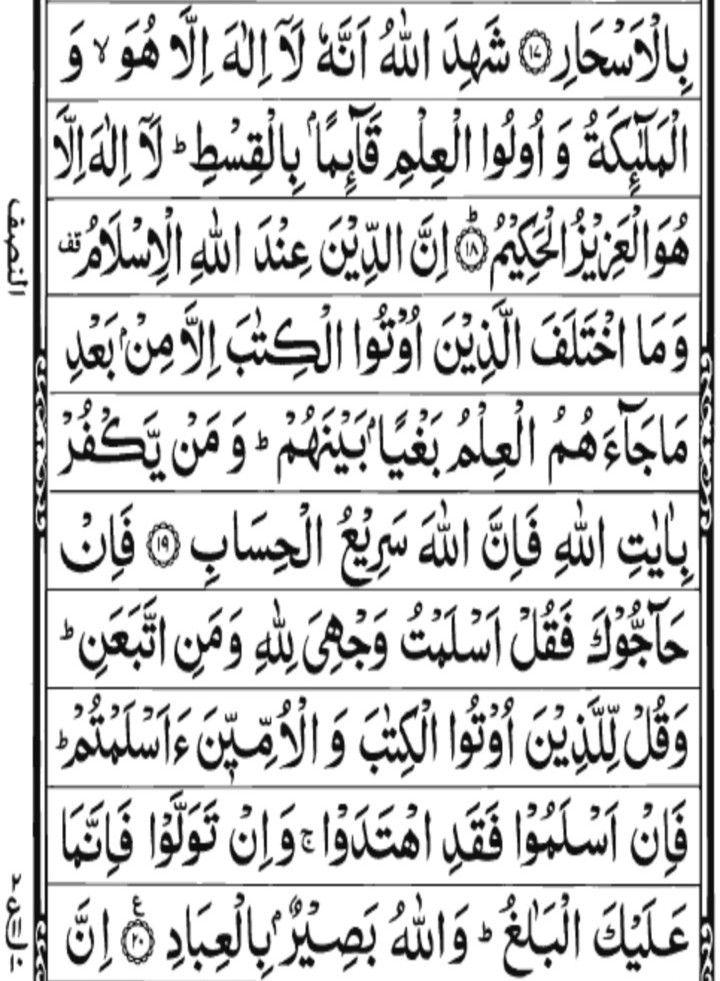 بِالْاَسْحَارِ ﴿۱۷﴾ شَهِدَ اللّٰهُ اَنَّهٗ لَاۤ اِلٰهَ اِلَّا هُوَ ۙ وَ
الْمَلٰٓئِكَةُ وَ اُولُوا الْعِلْمِ قَآئِمًاۢ بِالْقِسْطِ ؕ لَاۤ اِلٰهَ اِلَّا
هُوَ الْعَزِيْزُ الْحَكِيْمُ ؕ﴿۱۸﴾ اِنَّ الدِّيْنَ عِنْدَ اللّٰهِ الْاِسْلَامُ قف
وَ مَا اخْتَلَفَ الَّذِيْنَ اُوْتُوا الْكِتٰبَ اِلَّا مِنْۢ بَعْدِ
مَا جَآءَ هُمُ الْعِلْمُ بَغْيًاۢ بَيْنَهُمْ ؕ وَ مَنْ يَّكْفُرْ
بِاٰيٰتِ اللّٰهِ فَاِنَّ اللّٰهَ سَرِيْعُ الْحِسَابِ ﴿۱۹﴾ فَاِنْ
حَآجُّوْكَ فَقُلْ اَسْلَمْتُ وَجْهِيَ لِلّٰهِ وَ مَنِ اتَّبَعَنِ ؕ
وَقُلْ لِّلَّذِيْنَ اُوْتُوا الْكِتٰبَ وَ الْاُمِّيّٖنَ ءَاَسْلَمْتُمْ ؕ
فَاِنْ اَسْلَمُوْا فَقَدِ اهْتَدَوْا ۚ وَ اِنْ تَوَلَّوْا فَاِنَّمَا
عَلَيْكَ الْبَلٰغُ ؕ وَاللّٰهُ بَصِيْرٌۢ بِالْعِبَادِ ﴿۲۰﴾ ع اِنَّ
النصف